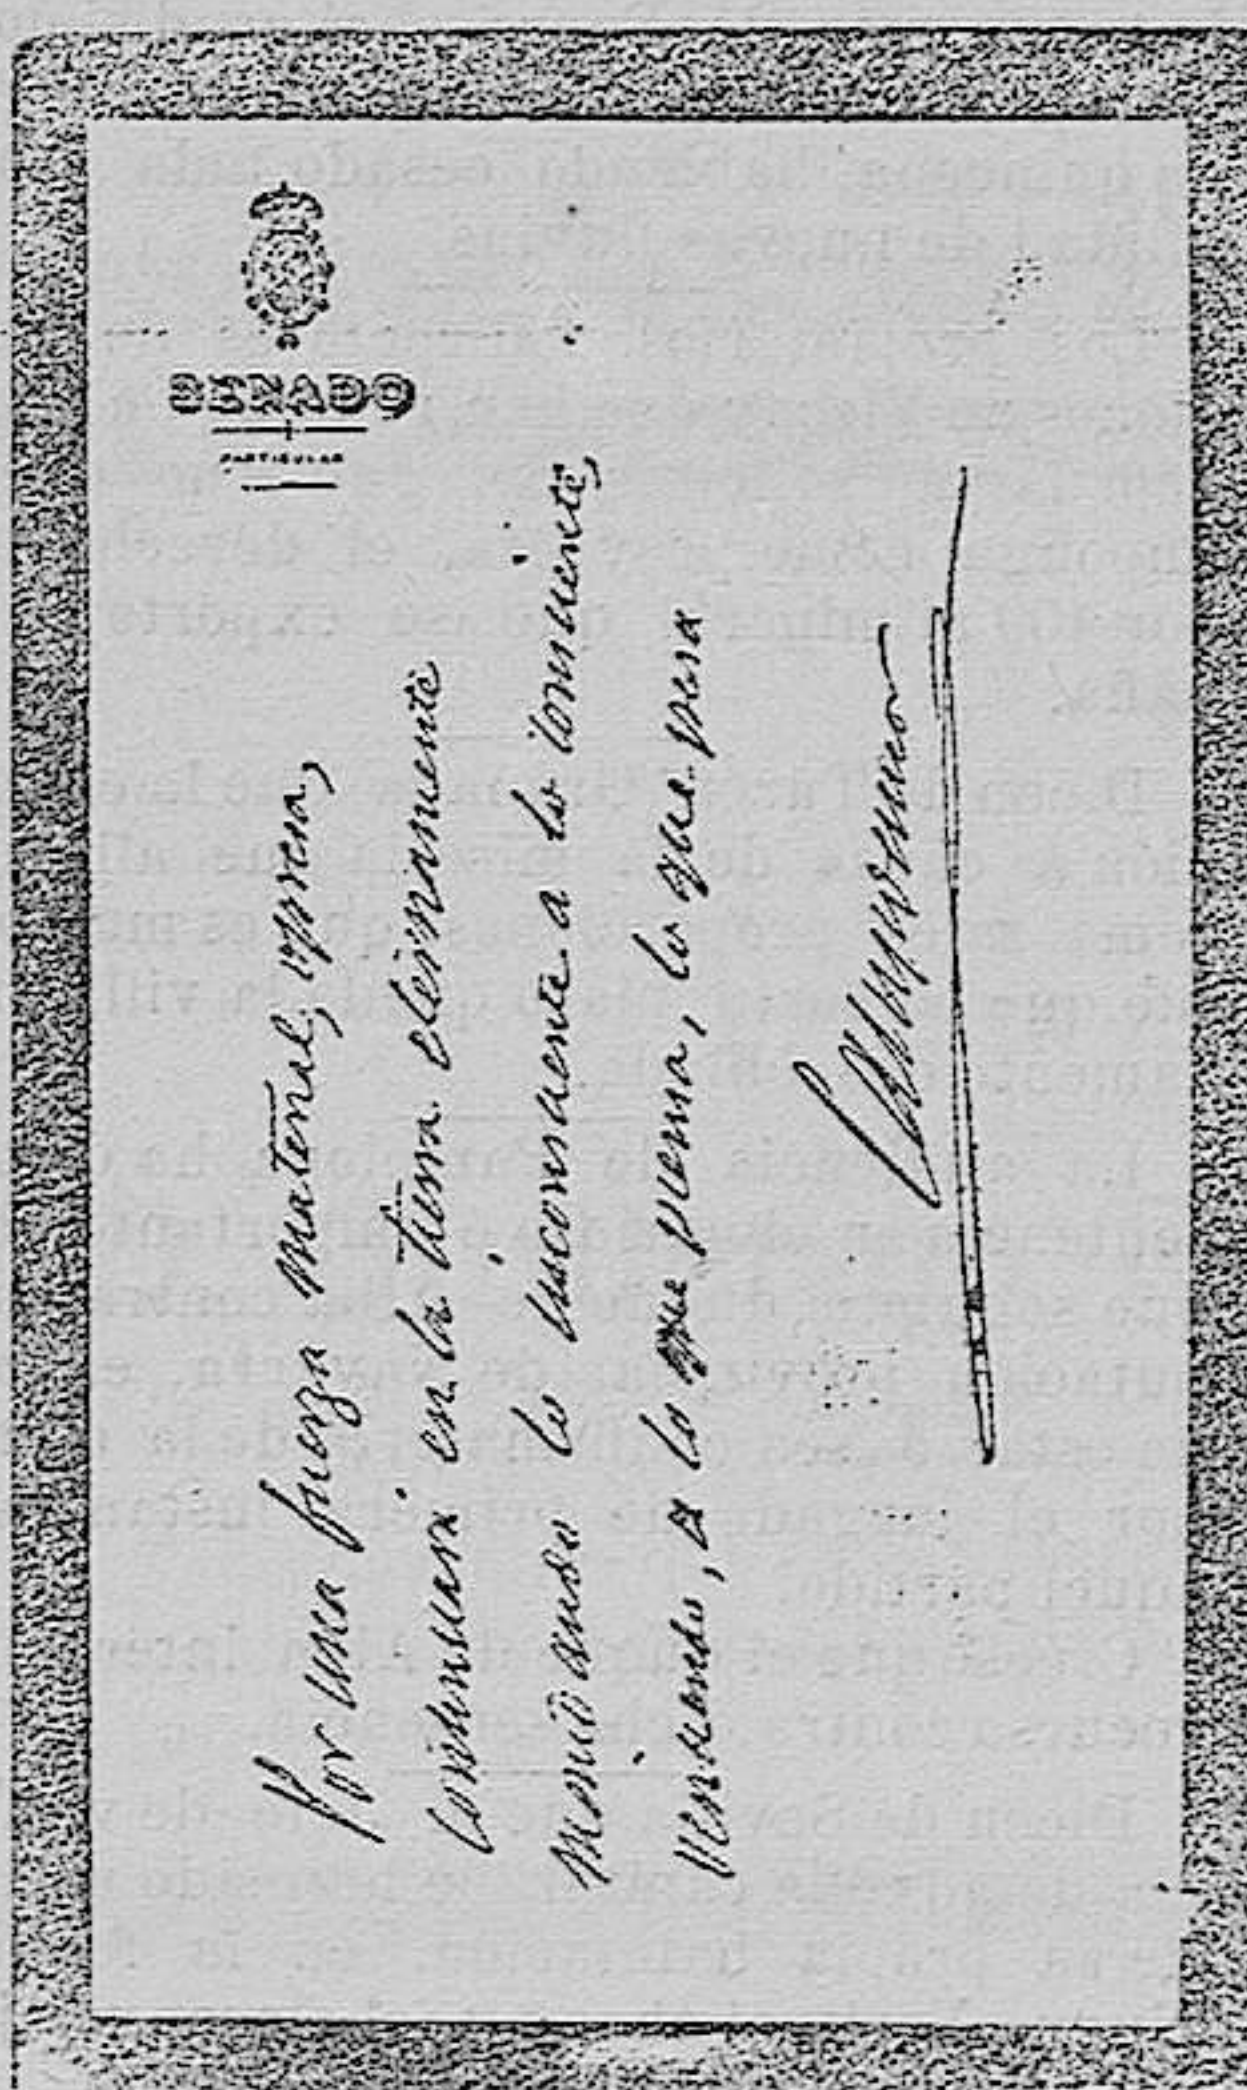 SENADO
PARTICULAR
Por una fuerza material, opresa,
Continuará en la tierra eternamente
mandando lo inconsciente a lo consciente,
venciendo, a lo que piensa, lo que pesa
Campoamor